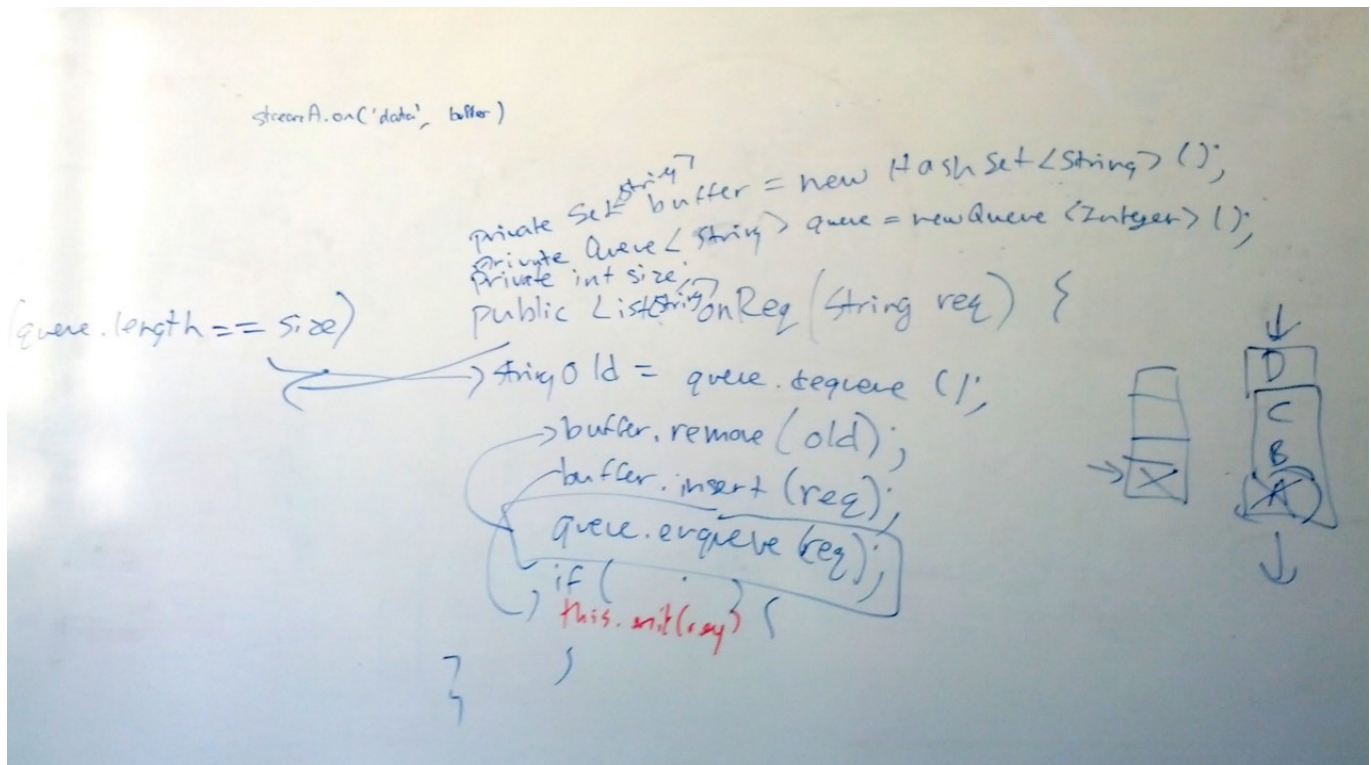 streamA.on('data', buffer)
private Set<String> buffer = new HashSet<String>();
private Queue<String> queue = new Queue<Integer>();
private int size;
public List<String> onReq(String req) {
(queue.length == size)
String old = queue.dequeue();
buffer.remove(old);
buffer.insert(req);
queue.enqueue(req);
if (
this.emit(req) {
}
}
D
C
B
A
X